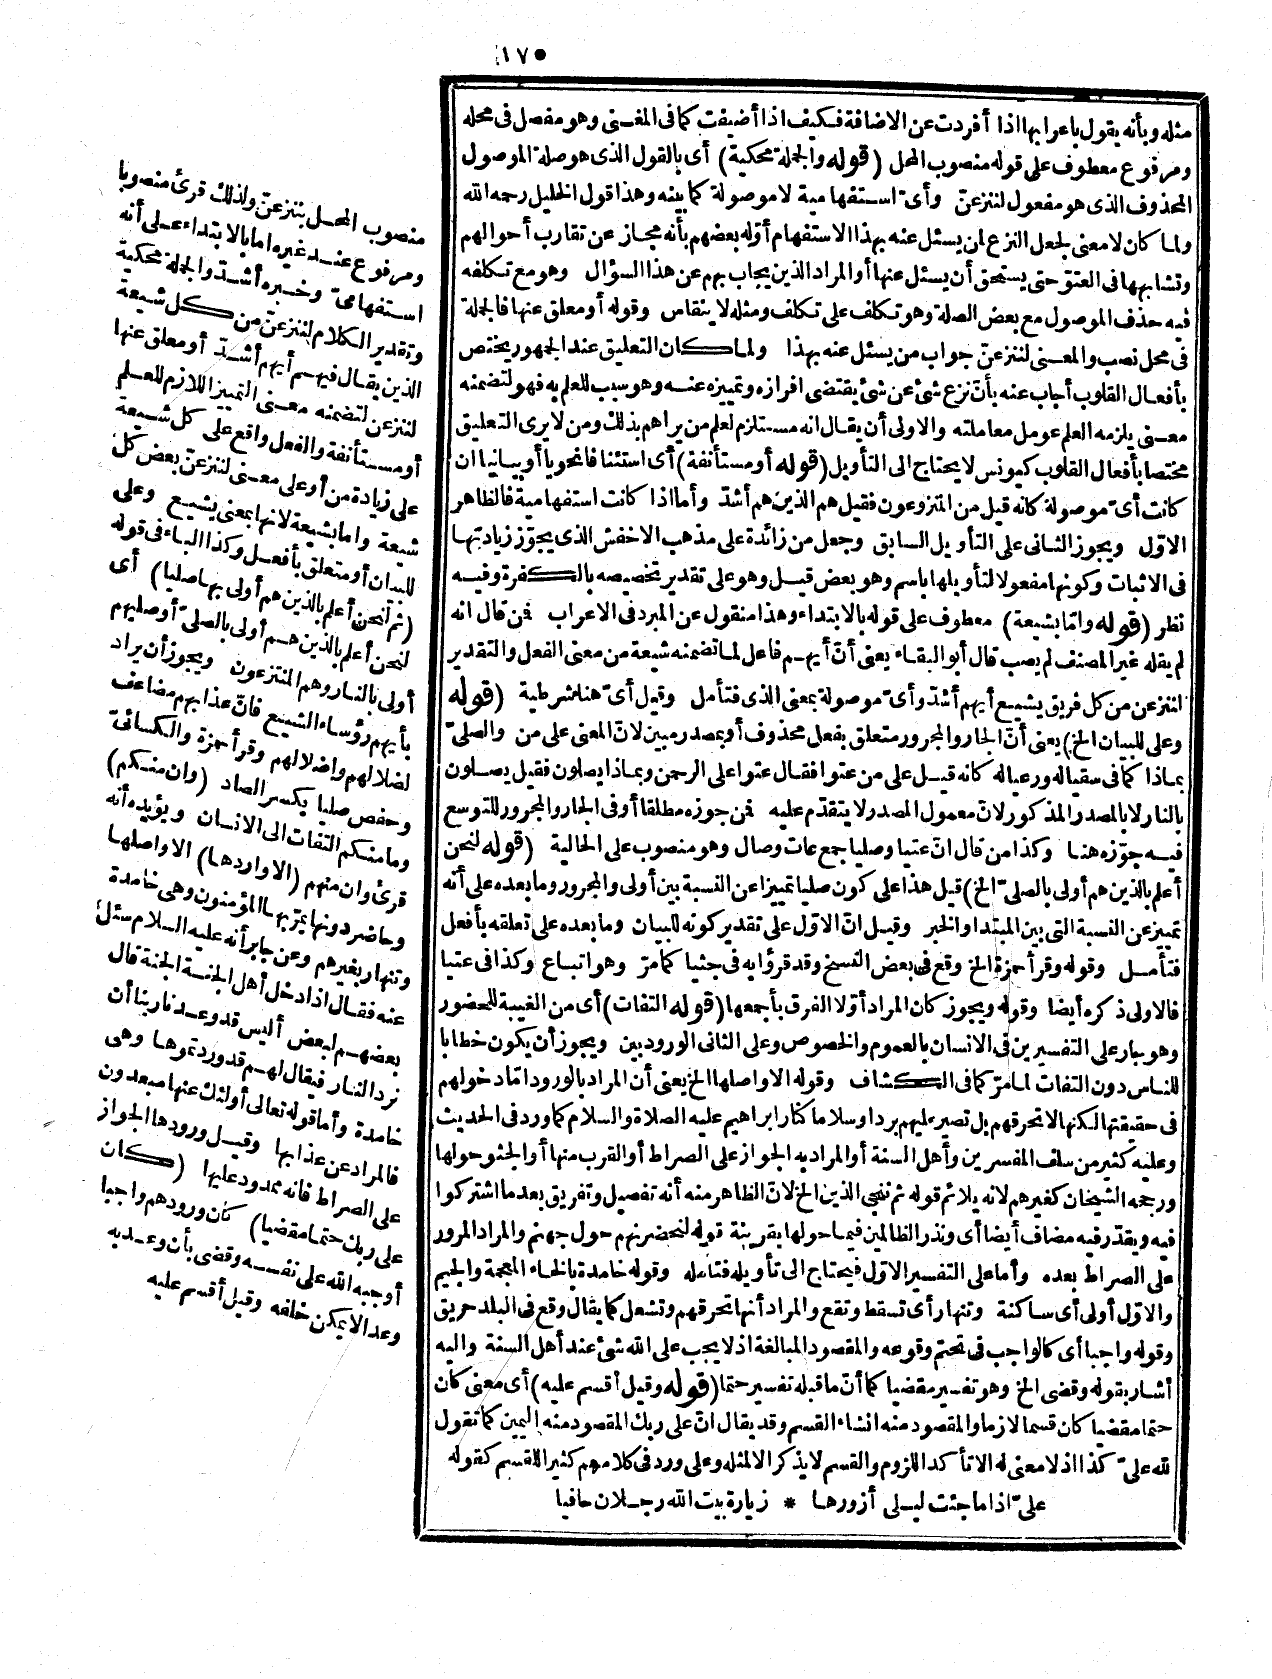 ١٧٥
مثله وبأنه يقول باعرابها اذا أفردت عن الاضافة فكيف اذا أضيفت كما فى المغنى وهو مفصل فى محله
ومرفوع معطوف على قوله منصوب المحل (قوله والجملة محكية) أى بالقول الذى هو صلة الموصول
المحذوف الذى هو مفعول لننزعنّ وأىّ استفهامية لا موصولة كما بينه وهذا قول الخليل رحمه الله
ولما كان لا معنى لجعل النزع لمن يسئل عنه بهذا الاستفهام أوّله بعضهم بأنه مجاز عن تقارب أحوالهم
وتشابهها فى العتوّ حتى يستحق أن يسئل عنها أو المراد الذين يجاب بهم عن هذا السؤال وهو مع تكلفه
فيه حذف الموصول مع بعض الصلة وهو تكلف على تكلف ومثله لا ينقاس وقوله أو معلق عنها فالجملة
فى محل نصب والمعنى لننزعنّ جواب من يسئل عنه بهذا ولما كان التعليق عند الجمهور يختص
بأفعال القلوب أجاب عنه بأنّ نزع شئ عن شئ يقتضى افرازه وتمييزه عنه وهو سبب للعلم به فهو لتضمنه
معنى يلزمه العلم عومل معاملته والاولى أن يقال انه مستلزم لعلم من يراهم بذلك ومن لا يرى التعليق
مختصا بأفعال القلوب كيونس لا يحتاج الى التأويل (قوله أو مستأنفة) أى استئنافا نحويا أو بيانيا ان
كانت أىّ موصولة كانه قيل من المنزوعون فقيل هم الذين هم أشدّ وأما اذا كانت استفهامية فالظاهر
الاوّل ويجوز الثانى على التأويل السابق وجعل من زائدة على مذهب الاخفش الذى يجوّز زيادتها
فى الاثبات وكونها مفعولا لتأويلها باسم وهو بعض قيل وهو على تقدير تخصيصه بالكفرة وفيه
نظر (قوله وامّا بشيعة) معطوف على قوله بالابتداء وهذا منقول عن المبرد فى الاعراب فمن قال انه
لم يقله غير المصنف لم يصب قال أبو البقاء يعنى أنّ أيهم فاعل لما تضمنه شيعة من معنى الفعل والتقدير
لننزعن من كل فريق يشيع أيهم أشدّ وأىّ موصولة بمعنى الذى فتأمل وقيل أىّ هنا شرطية (قوله
وعلى للبيان الخ) يعنى أنّ الجار والمجرور متعلق بفعل محذوف أو بمصدر مبين لانّ المعنى على من والصلىّ
بماذا كما فى سقيا له ورعيا له كانه قيل على من عتوا فقال عتوا على الرحمن وبماذا يصلون فقيل يصلون
بالنار لا بالمصدر المذكور لانّ معمول المصدر لا يتقدّم عليه فمن جوزه مطلقا أو فى الجار والمجرور للتوسع
فيه جوّزه هنا وكذا من قال انّ عتيا وصليا جمع عات وصال وهو منصوب على الحالية (قوله لنحن
أعلم بالذين هم أولى بالصلىّ الخ) قيل هذا على كون صليا تمييزا عن النسبة بين أولى والمجرور وما بعده على أنّه
تمييز عن النسبة التى بين المبتدا والخبر وقيل انّ الاوّل على تقدير كونه للبيان وما بعده على تعلقه بأفعل
فتأمل وقوله وقرأ حمزة الخ وقع فى بعض النسخ وقد قرؤا به فى جثيا كما مرّ وهو اتباع وكذا فى عتيا
فالاولى ذكره أيضا وقوله ويجوز كان المراد أوّلا الفرق بأجمعها (قوله التفات) أى من الغيبة للحضور
وهو جار على التفسيرين فى الانسان بالعموم والخصوص وعلى الثانى الورود بين ويجوز أن يكون خطابا
للناس دون التفات لما مرّ كما فى الكشاف وقوله الا واصلها الخ يعنى أن المراد بالورود امّا دخولهم
فى حقيقتها لكنها لا تحرقهم بل تصير عليهم بردا وسلاما كنار ابراهيم عليه الصلاة والسلام كما ورد فى الحديث
وعليه كثير من سلف المفسرين وأهل السنة أو المراد به الجواز على الصراط أو القرب منها أو الجثو حولها
ورجحه الشيخان كغيرهم لانه يلائم قوله ثم ننجى الذين الخ لانّ الظاهر منه أنه تفصيل وتفريق بعد ما اشتركوا
فيه ويقدّر فيه مضاف أيضا أى ونذر الظالمين فيما حولها بقرينة قوله لنحضرنهم حول جهنم والمراد المرور
على الصراط بعده وأما على التفسير الاوّل فيحتاج الى تأويله فتأمله وقوله خامدة بالخاء المعجمة والجيم
والاوّل أولى أى ساكنة وتنهار أى تسقط وتقع والمراد أنها تحرقهم وتشعل كما يقال وقع فى البلد حريق
وقوله واجبا أى كالواجب فى تحتم وقوعه والمقصود المبالغة اذ لا يجب على الله شئ عند أهل السنة واليه
أشار بقوله وقضى الخ وهو تفسير مقضيا كما أنّ ما قبله تفسير حتما (قوله وقيل أقسم عليه) أى معنى كان
حتما مقضيا كان قسما لازما والمقصود منه انشاء القسم وقد يقال انّ على ربك المقصود منه اليمين كما تقول
لله علىّ كذا اذ لا معنى له الا تأكد اللزوم والقسم لا يذكر الا لمثله وعلى ورد فى كلامهم كثيرا للقسم كقوله
علىّ اذا ما جئت ليلى أزورها * زيارة بيت الله رجلان حافيا
منصوب المحل بننزعنّ ولذلك قرئ منصوبا
ومرفوع عند غيره اما بالابتداء على أنه
استفهامىّ وخبره أشدّ والجملة محكية
وتقدير الكلام لننزعنّ من كل شيعة
الذين يقال فيهم أيهم أشدّ أو معلق عنها
لننزعن لتضمنه معنى التمييز اللازم للعلم
أو مستأنفة والفعل واقع على كل شيعة
على زيادة من أو على معنى لننزعنّ بعض كل
شيعة واما بشيعة لانها بمعنى يشيع وعلى
للبيان أو متعلق بأفعل وكذا الباء فى قوله
(ثم لنحن أعلم بالذين هم أولى بها صليا) أى
لنحن أعلم بالذين هم أولى بالصلىّ أو صليهم
أولى بالنار وهم المنتزعون ويجوز أن يراد
بأيهم رؤساء الشيع فانّ عذابهم مضاعف
لضلالهم واضلالهم وقرأ حمزة والكسائىّ
وحفص صليا بكسر الصاد (وان منكم)
وما منكم التفات الى الانسان ويؤيده أنه
قرئ وان منهم (الا واردها) الا واصلها
وحاضر دونها يمرّ بها المؤمنون وهى خامدة
وتنهار بغيرهم وعن جابر أنه عليه السلام سئل
عنه فقال اذا دخل أهل الجنة الجنة قال
بعضهم لبعض أليس قد وعدنا ربنا أن
نرد النار فيقال لهم قد وردتموها وهى
خامدة وأما قوله تعالى أولئك عنها مبعدون
فالمراد عن عذابها وقيل ورودها الجواز
على الصراط فانه ممدود عليها (كان
على ربك حتما مقضيا) كان ورودهم واجبا
أوجبه الله على نفسه وقضى بأن وعد به
وعدا لا يمكن خلفه وقيل أقسم عليه